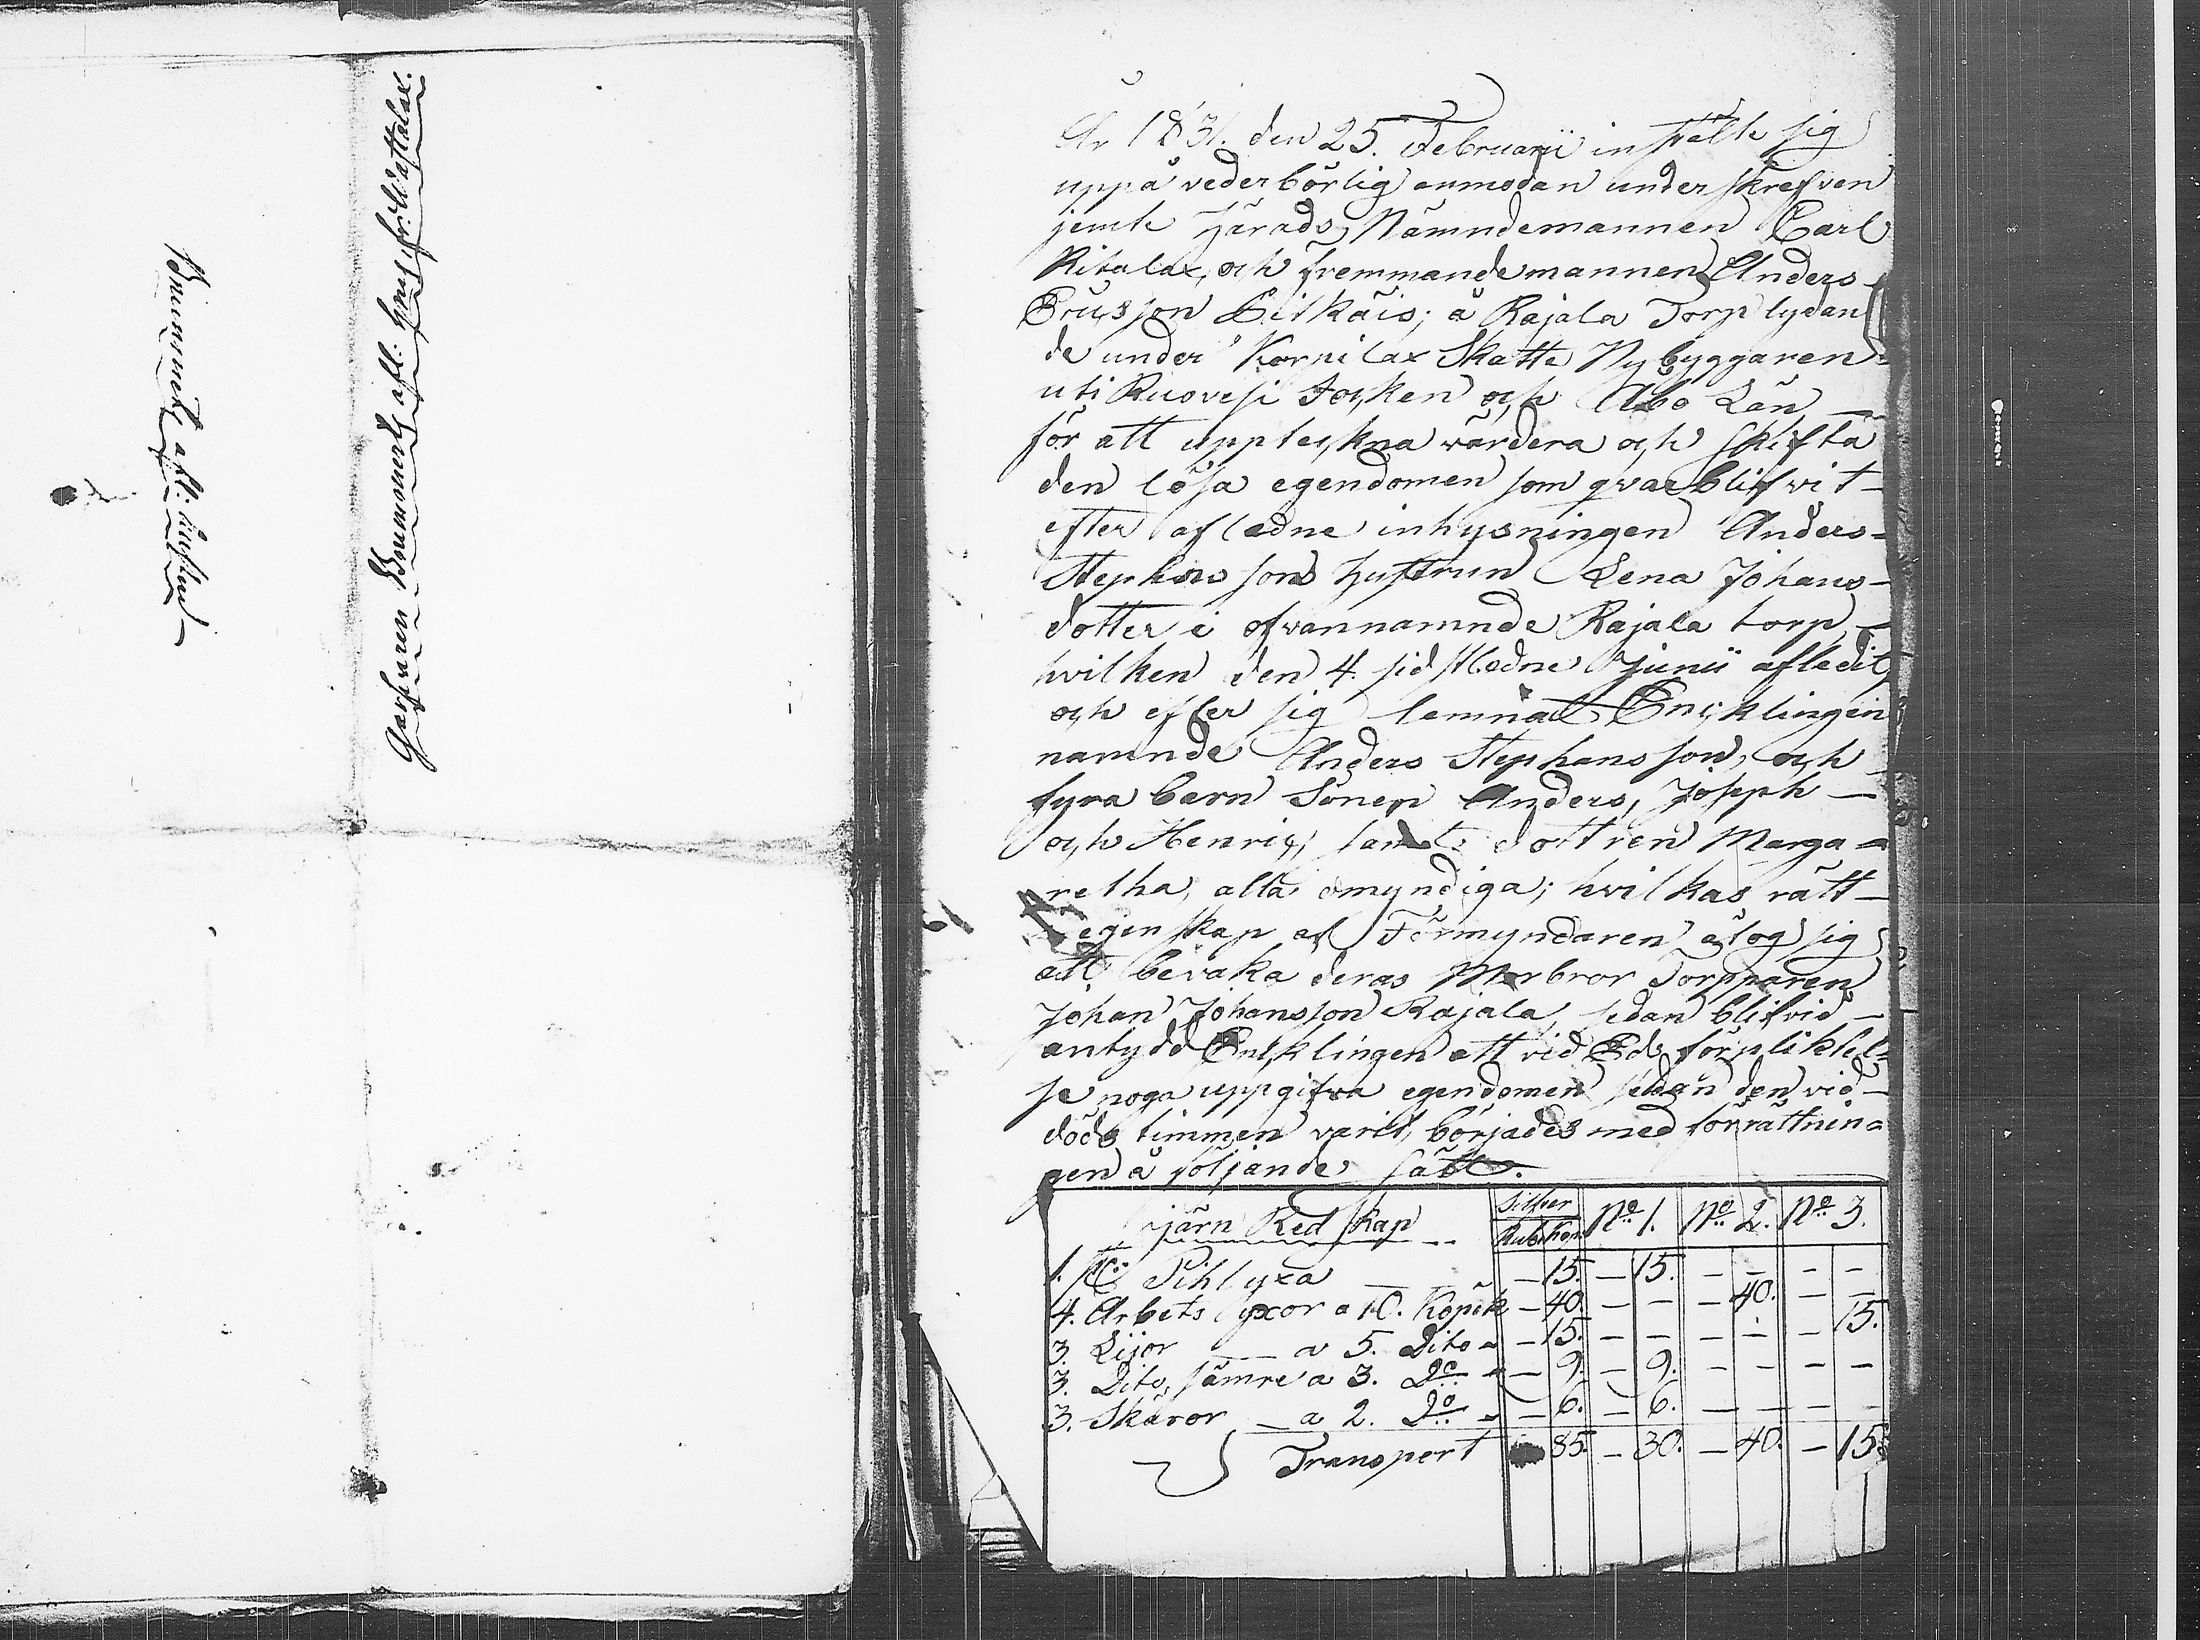 Brummert afl: hustru
Garfvaren Brummerts afl: hus
År 1831. den 25. Februarii instälte sig
uppå vederbörlig anmodan underskrefven
jemte Härads Nämndemannen Carl
Ritalax, och fremmande mannen Anders
Ericsson Pitkäis; å Rajala Torp lydan
de under Korpilax Skatte Nybyggaren
uti Ruovesi Socken och Åbo Län
för att uppteckna värdera och skifta
den lösa egendomen som qvarblifvit
efter afledne inhysningen Anders
Stephans sons hustrun Lena Johans-
dotter i ofvannamnde Rajala torp
hvilken den 4. sidstledne Junii afledit
och efter sig lemnat Encklingen
namnde Anders Stephansson, och
fyra barn Sönen Anders, Joseph
och Henric, samt dottren Marga=
retha, alla omyndiga; hvilkas rätt
egenskap af Förmyndaren åtog sig
att bevaka deras Morbror Torpparen
Johan Johansson Rajala, sedan blifvid
antydd Encklingen att vid Eds förpliktel=
se noga uppgifva egendomen sådan den vid
döds timmen varit, börjades med förrättnin=
gen å följande sätt.
Järn Redskap Silfver Rub. Kop. No 1. No 2. No 3.
1. st: Pihlyxa — 15. — 15. — — — —
4. Arbets yxor a 10. Kopek — 40. — — — 40. — —
3. Lijor — a 5. Dito — 15. — — — — — 15.
3. Dito, sämre a 3. Do — 9. — 9. — — — —
3. Skäror — a 2. Do — 6. — 6. — — — —
Transport 85. — 30. — 40. — 15.